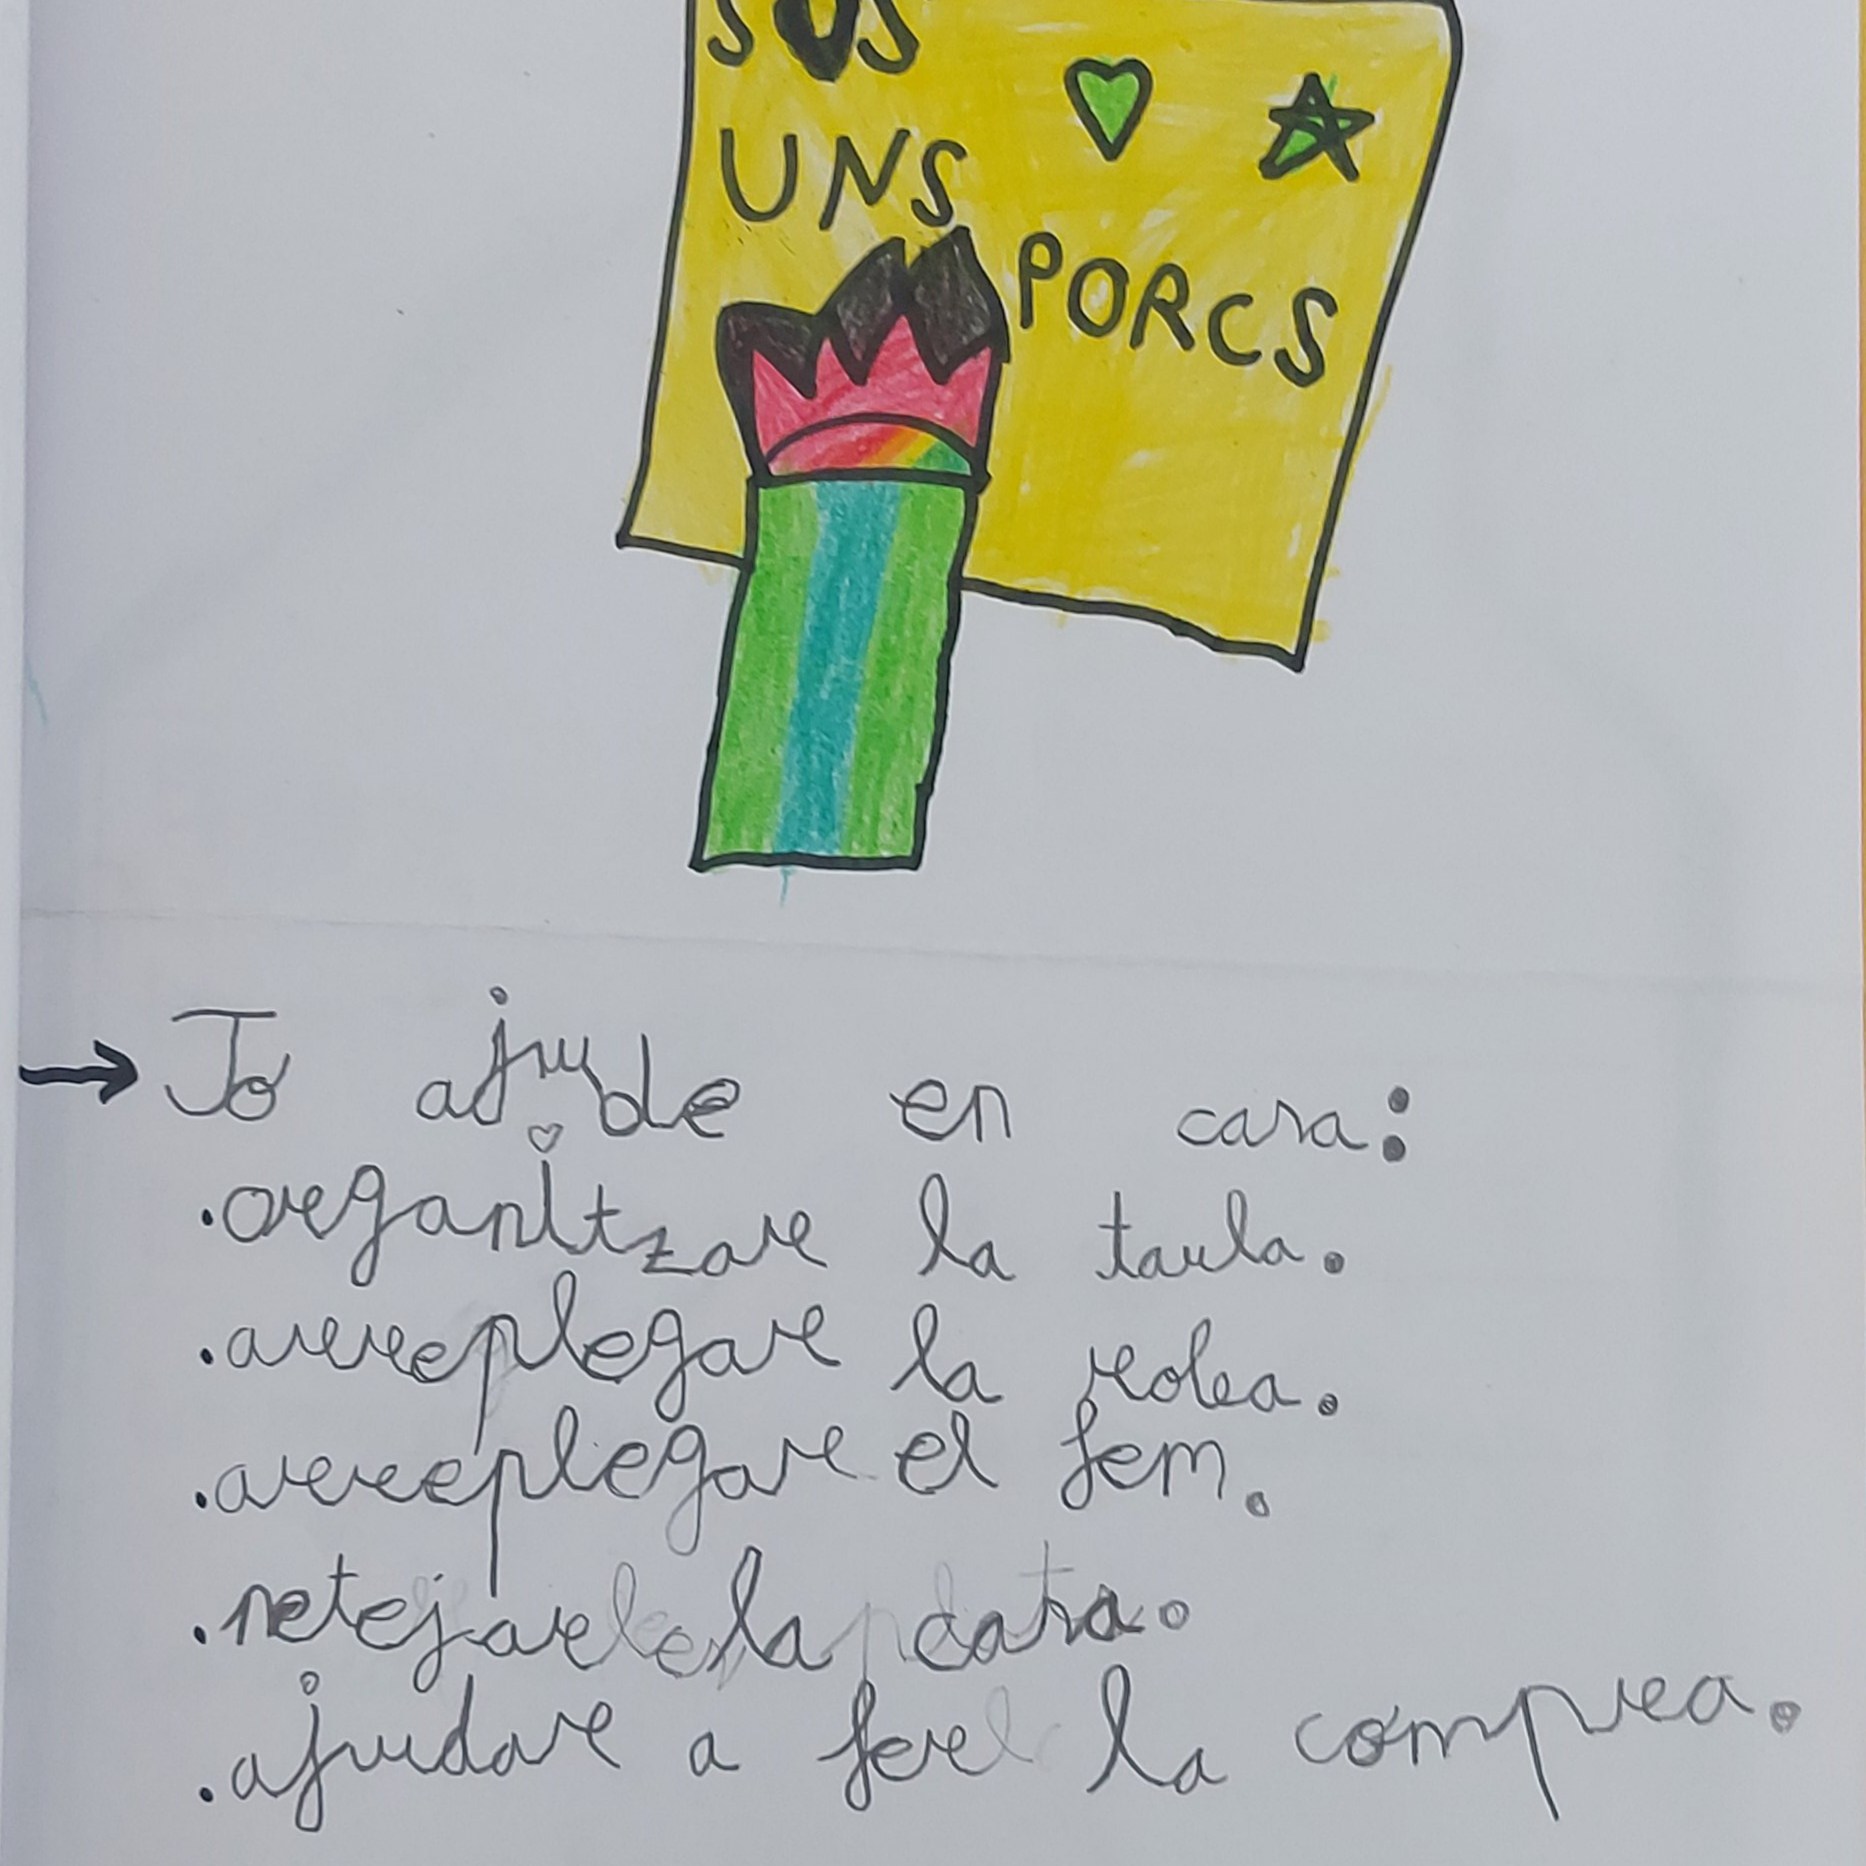 SOS
UNS
PORCS
Jo ajude en casa:
.organitzar la taula.
.arreplegar la roba.
.arreplegar el fem.
.netejar la casa.
.ajudar a fer la compra.